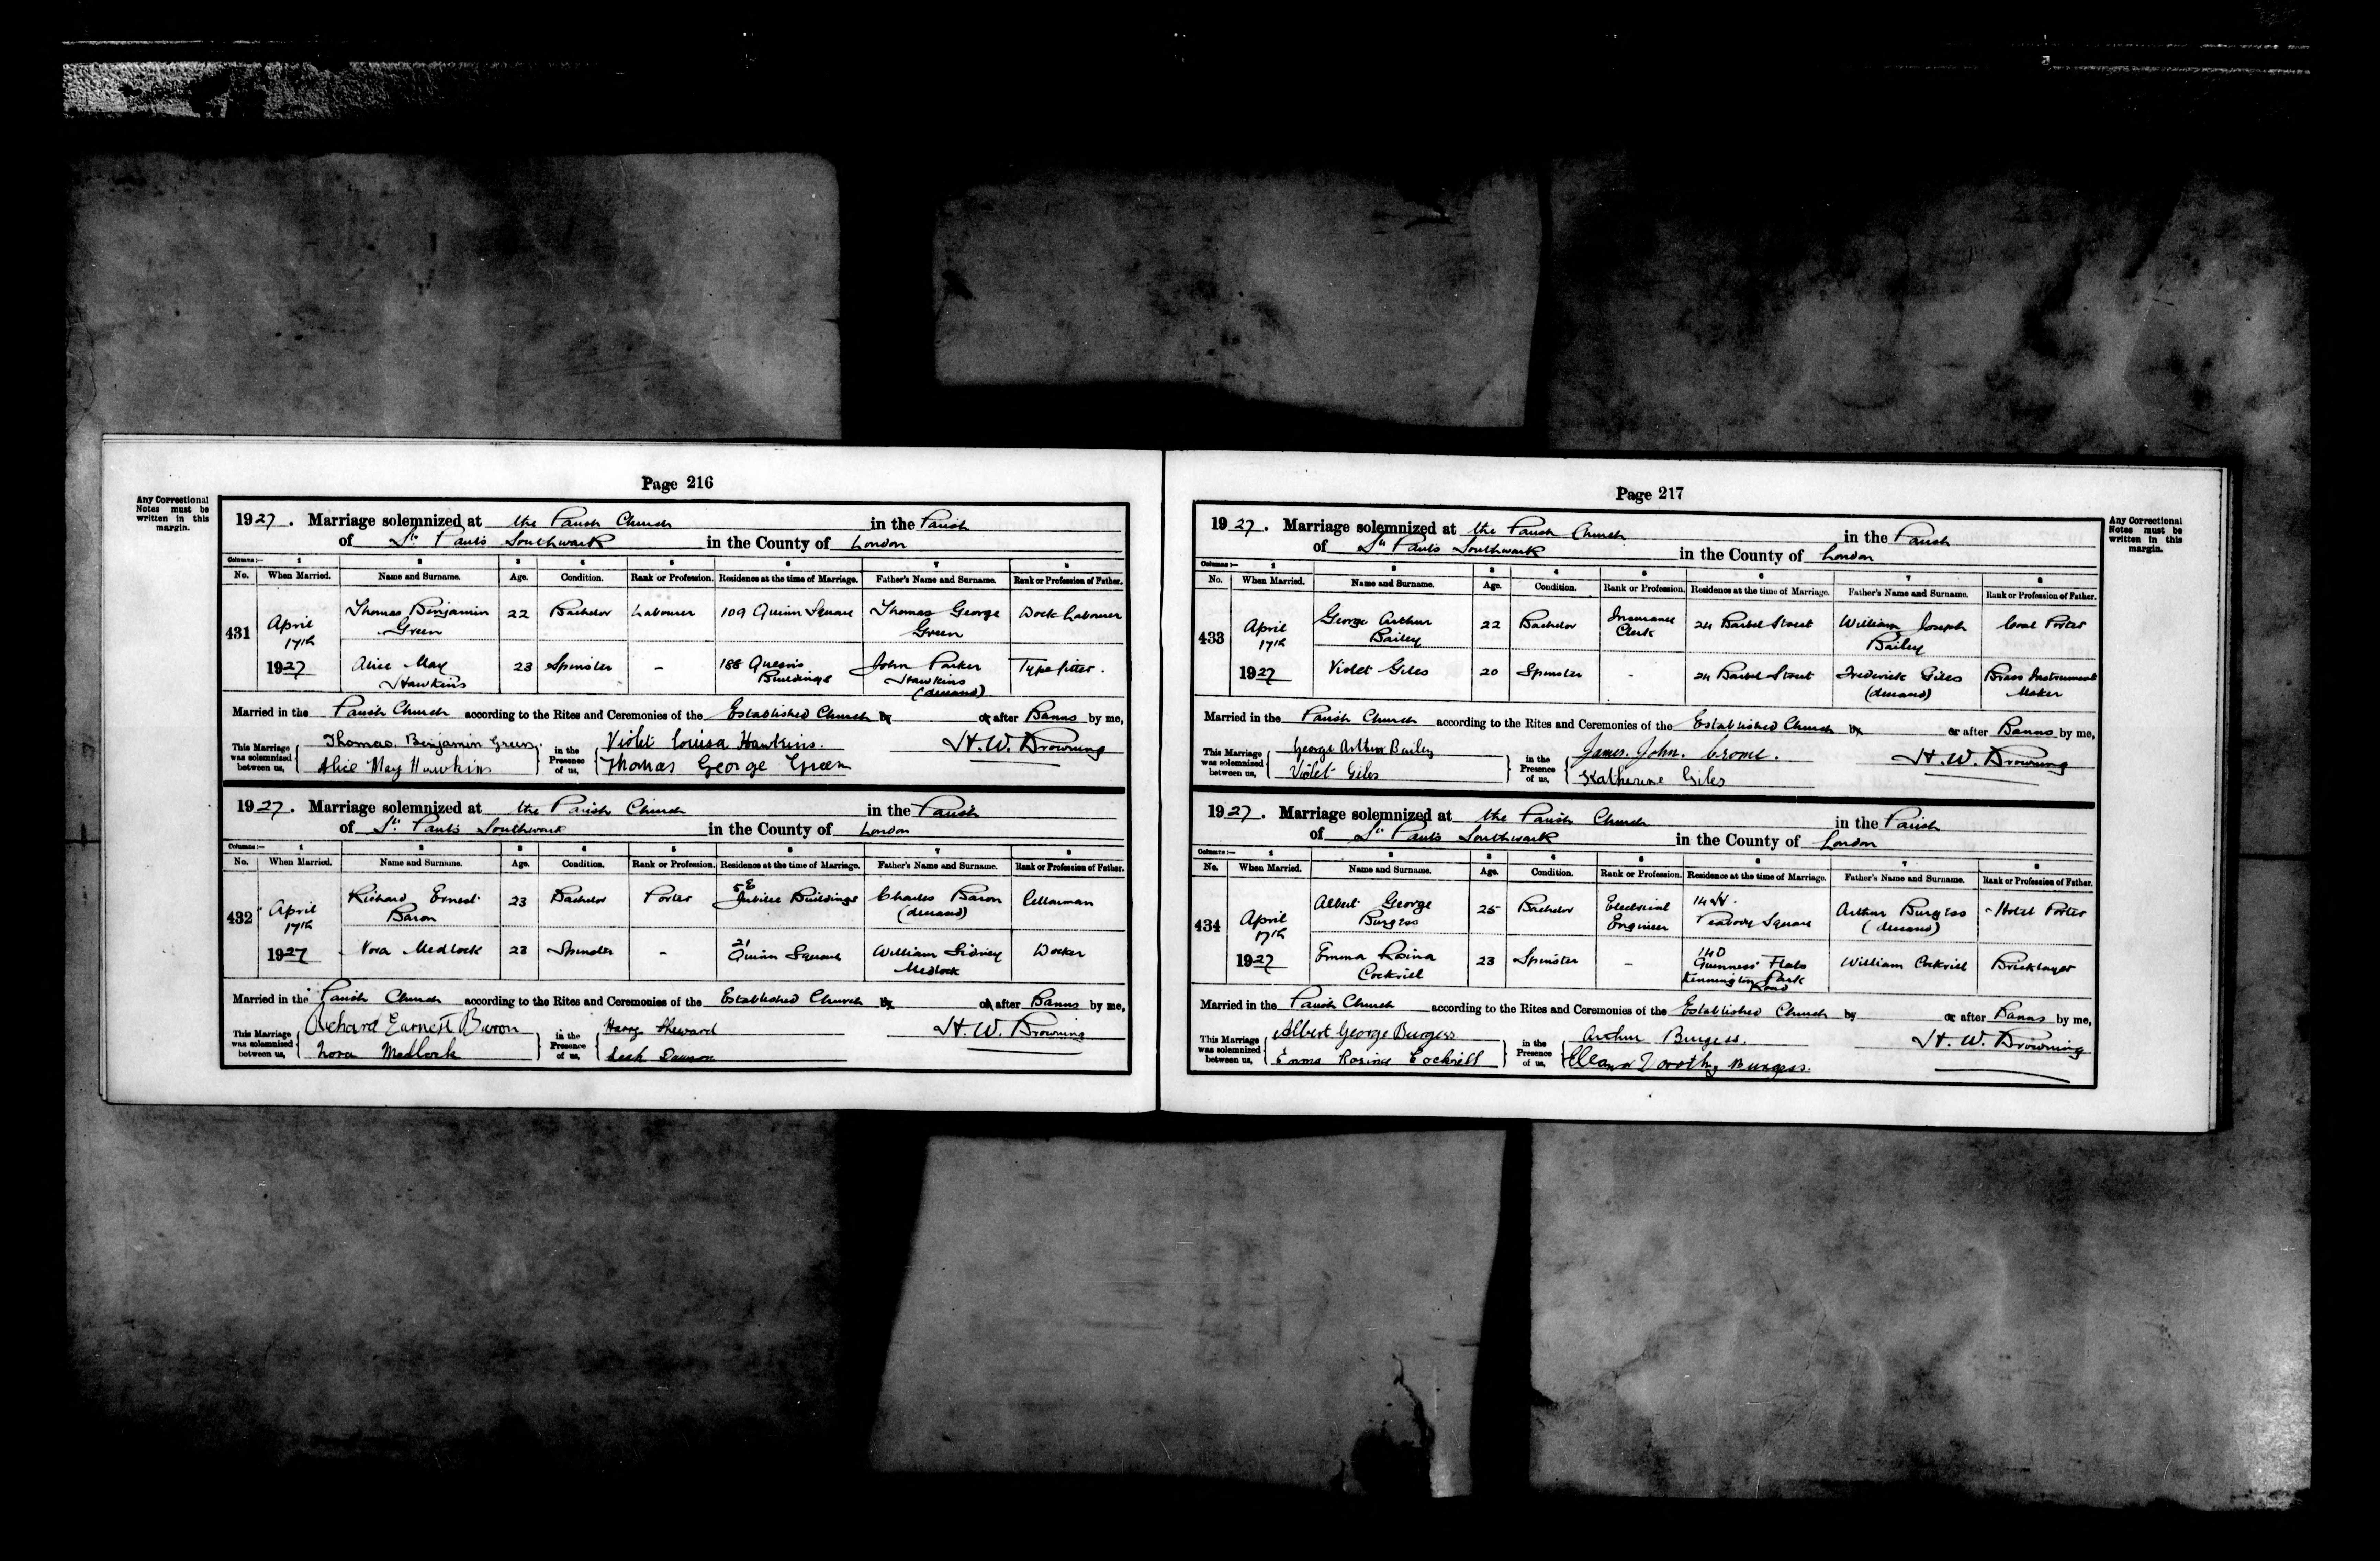 Page 216
Any Correctional
Notes must be
written in this
margin.
1927. Marriage solemnized at the Parish Church in the Parish
of St. Paul's Southwark in the County of London
Columns:— 1 2 3 4 5 6 7 8
No. When Married. Name and Surname. Age. Condition. Rank or Profession. Residence at the time of Marriage. Father's Name and Surname. Rank or Profession of Father.
431 April 17th Thomas Benjamin Green 22 Bachelor Labourer 109 Quinn Square Thomas George Green Dock Labourer
1927 Alice May Hawkins 23 Spinster - 188 Queen's Buildings John Parker Hawkins (deceased) Type fitter.
Married in the Parish Church according to the Rites and Ceremonies of the Established Church by or after Banns by me,
This Marriage was solemnized between us, Thomas Benjamin Green. in the Presence of us, Violet Louisa Hawkins. H. W. Browning
Alice May Hawkins Thomas George Green
1927. Marriage solemnized at the Parish Church in the Parish
of St. Paul's Southwark in the County of London
Columns:— 1 2 3 4 5 6 7 8
No. When Married. Name and Surname. Age. Condition. Rank or Profession. Residence at the time of Marriage. Father's Name and Surname. Rank or Profession of Father.
432 April 17th Richard Ernest Baron 23 Bachelor Porter 5E Jubilee Buildings Charles Baron (deceased) Cellarman
1927 Nora Medlock 23 Spinster - 21 Quinn Square William Sidney Medlock Docker
Married in the Parish Church according to the Rites and Ceremonies of the Established Church by or after Banns by me,
This Marriage was solemnized between us, Richard Earnest Baron in the Presence of us, Harry Sheward H. W. Browning
Nora Medlock Leah Dawson
Page 217
Any Correctional
Notes must be
written in this
margin.
1927. Marriage solemnized at the Parish Church in the Parish
of St. Paul's Southwark in the County of London
Columns:— 1 2 3 4 5 6 7 8
No. When Married. Name and Surname. Age. Condition. Rank or Profession. Residence at the time of Marriage. Father's Name and Surname. Rank or Profession of Father.
433 April 17th George Arthur Bailey 22 Bachelor Insurance Clerk 24 Barbel Street William Joseph Bailey Coal Porter
1927 Violet Giles 20 Spinster - 24 Barbel Street Frederick Giles (deceased) Brass Instrument Maker
Married in the Parish Church according to the Rites and Ceremonies of the Established Church by or after Banns by me,
This Marriage was solemnized between us, George Arthur Bailey in the Presence of us, James. John. Crone. H. W. Browning
Violet Giles Katherine Giles
1927. Marriage solemnized at the Parish Church in the Parish
of St. Paul's Southwark in the County of London
Columns:— 1 2 3 4 5 6 7 8
No. When Married. Name and Surname. Age. Condition. Rank or Profession. Residence at the time of Marriage. Father's Name and Surname. Rank or Profession of Father.
434 April 17th Albert George Burgess 25 Bachelor Electrical Engineer 14 H. Peabody Square Arthur Burgess (deceased) Hotel Porter
1927 Emma Rosina Cockrill 23 Spinster - 14D Guinness' Flats Kennington Park Road William Cockrill Bricklayer
Married in the Parish Church according to the Rites and Ceremonies of the Established Church by or after Banns by me,
This Marriage was solemnized between us, Albert George Burgess in the Presence of us, Arthur Burgess. H. W. Browning
Emma Rosina Cockrill Dorothy Burgess.